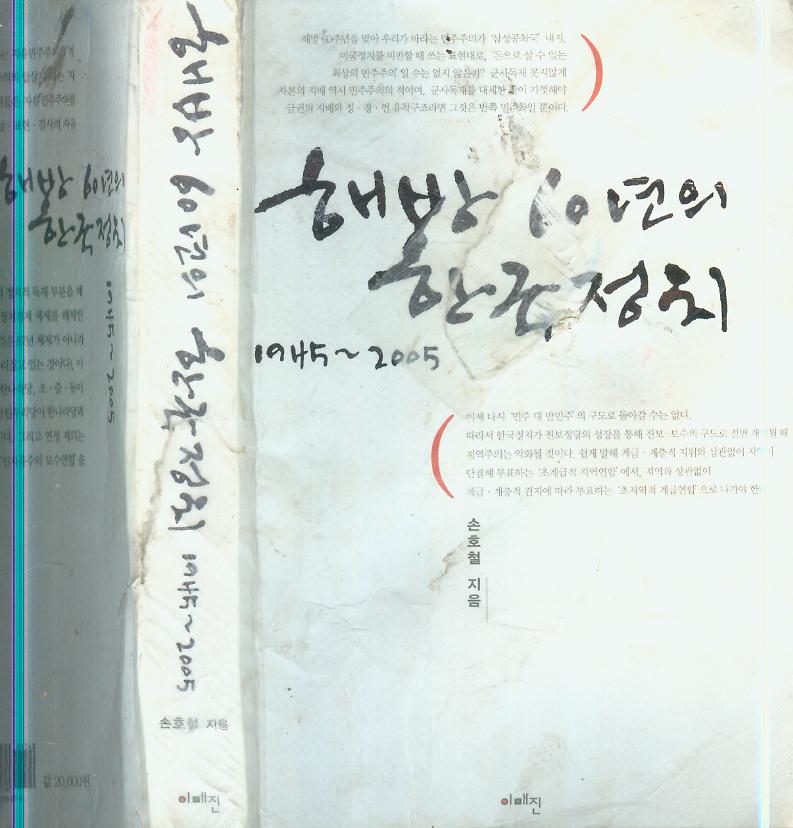 해방 60주년을 맞아 우리가 바라는 민주주의가 '삼성공화국' 내지,
미국정치를 비판할 때 쓰는 표현대로, '돈으로 살 수 있는
최상의 민주주의'일 수는 없지 않은가? 군사독재 못지않게
자본의 지배 역시 민주주의의 적이며, 군사독재를 대세한 것이 기껏해야
금권의 지배와 정·경·언 유착구조라면 그것은 반쪽 민주화일 뿐이다.
해방 60년의
한국정치
1945~2005
이제 다시 '민주 대 반민주'의 구도로 돌아갈 수는 없다.
따라서 한국정치가 진보정당의 성장을 통해 진보-보수의 구도로 전면 개편될 때
지역주의는 약화될 것이다. 쉽게 말해 계급·계층적 지위와 상관없이 지역이
단결해 투표하는 '초계급적 지역연합'에서, 지역과 상관없이
계급·계층적 견지에 따라 투표하는 '초지역적 계급연합'으로 나가야 한
손호철 지음
이매진
해방 60년의 한국정치 1945~2005
손호철 지음
이매진
해방 60년의
한국정치
1945~2005
정치적 독재 부분을 해
정치경제 체제를 해체한
것은 87년 체제가 아니라
있는 것이다. 이
한나라당, 조·중·동이
한나라당과
그리고 연정 제의는
보수연합'을
값 20,000원